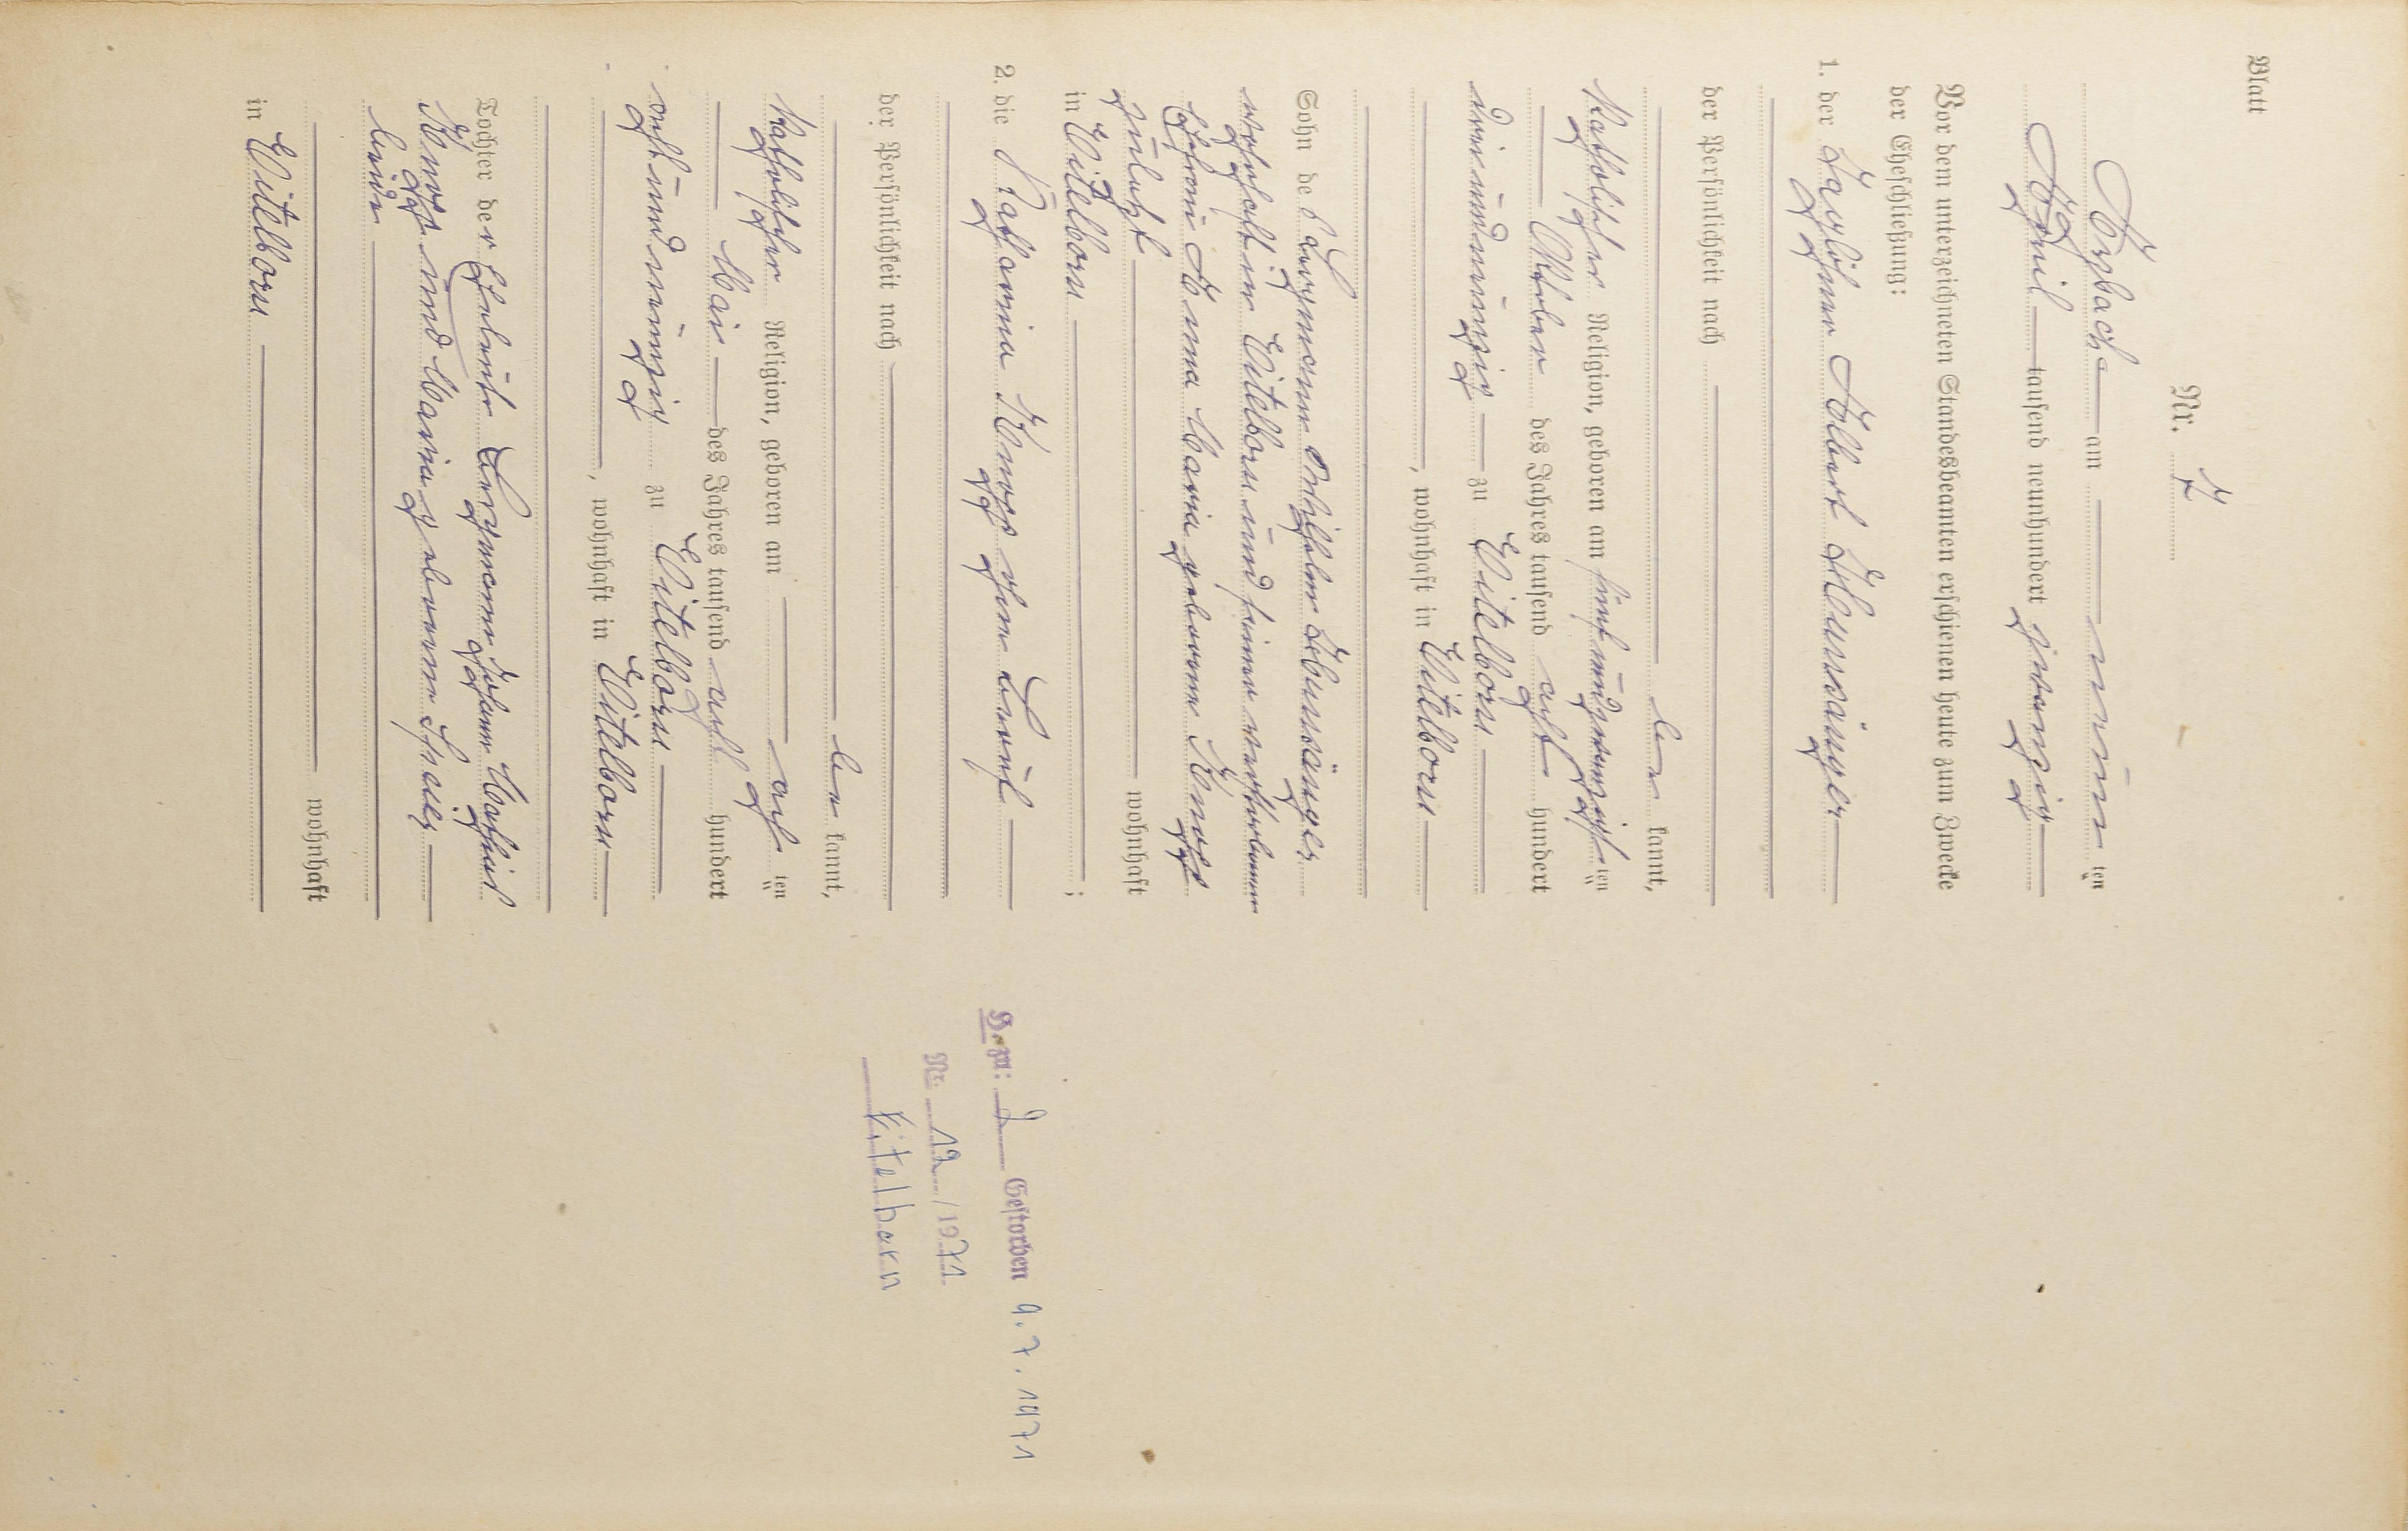 Blatt
Nr. 7
Arzbach am neun ten
April tausend neunhundert zwanzig
Vor dem unterzeichneten Standesbeamten erschienen heute zum Zwecke
der Eheschließung:
1. der Taglöhner Albert
der Persönlichkeit nach
be kannt,
katholischer Religion, geboren am fünfundzwanzigsten
Oktober des Jahres tausend acht hundert
dreiundneunzig zu Eitelborn
, wohnhaft in Eitelborn
Sohn des Bergmann Wilhelm
wohnhaft in Eitelborn und seiner verstorbenen
Ehefrau Anna Maria geborene Knopp
zuletzt wohnhaft
in Eitelborn ;
2. die Katharina Knopp ohne Beruf
der Persönlichkeit nach
be kannt,
katholischer Religion, geboren am acht ten
Mai des Jahres tausend acht hundert
achtundneunzig zu Eitelborn
, wohnhaft in Eitelborn
Tochter der Eheleute Bergmann Johann Mathias
Knopp und Maria geborene
beide
wohnhaft
in Eitelborn
H. zu: 2 Gestorben 9.7.1971
Nr. 12/1971
Eitelborn